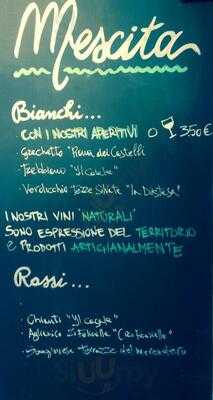 Mescita
Bianchi...
CON I NOSTRI APERITIVI O 3,50€
Grechetto "Piana dei Castelli
Trebbiano "Il
Verdicchio Terre Silvate "La Distesa"
I NOSTRI VINI 'NATURALI'
SONO ESPRESSIONE DEL TERRITORIO
e PRODOTTI ARTIGIANALMENTE
Rossi...
Chianti "Il
Aglianico
Sangiovese